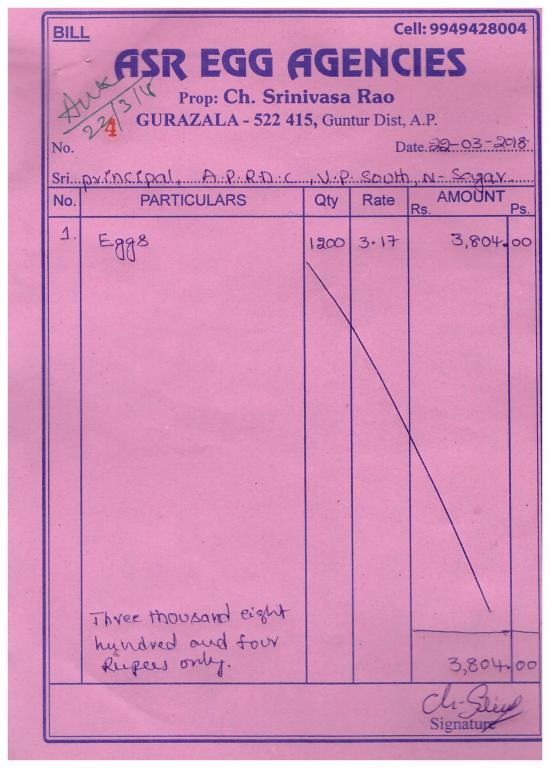 BILL
Cell: 9949428004
ASR EGG AGENCIES
Prop: Ch. Srinivasa Rao
22/3/18
GURAZALA - 522 415, Guntur Dist, A.P.
4
No.
Date 22-03-2018
Sri principal, A.P.R.D.C, V.P. South, N-Sagar
No. PARTICULARS Qty Rate AMOUNT
Rs. Ps.
1. Eggs 1200 3.17 3,804.00
Three thousand eight
hundred and four
Rupees only.
3,804.00
Signature